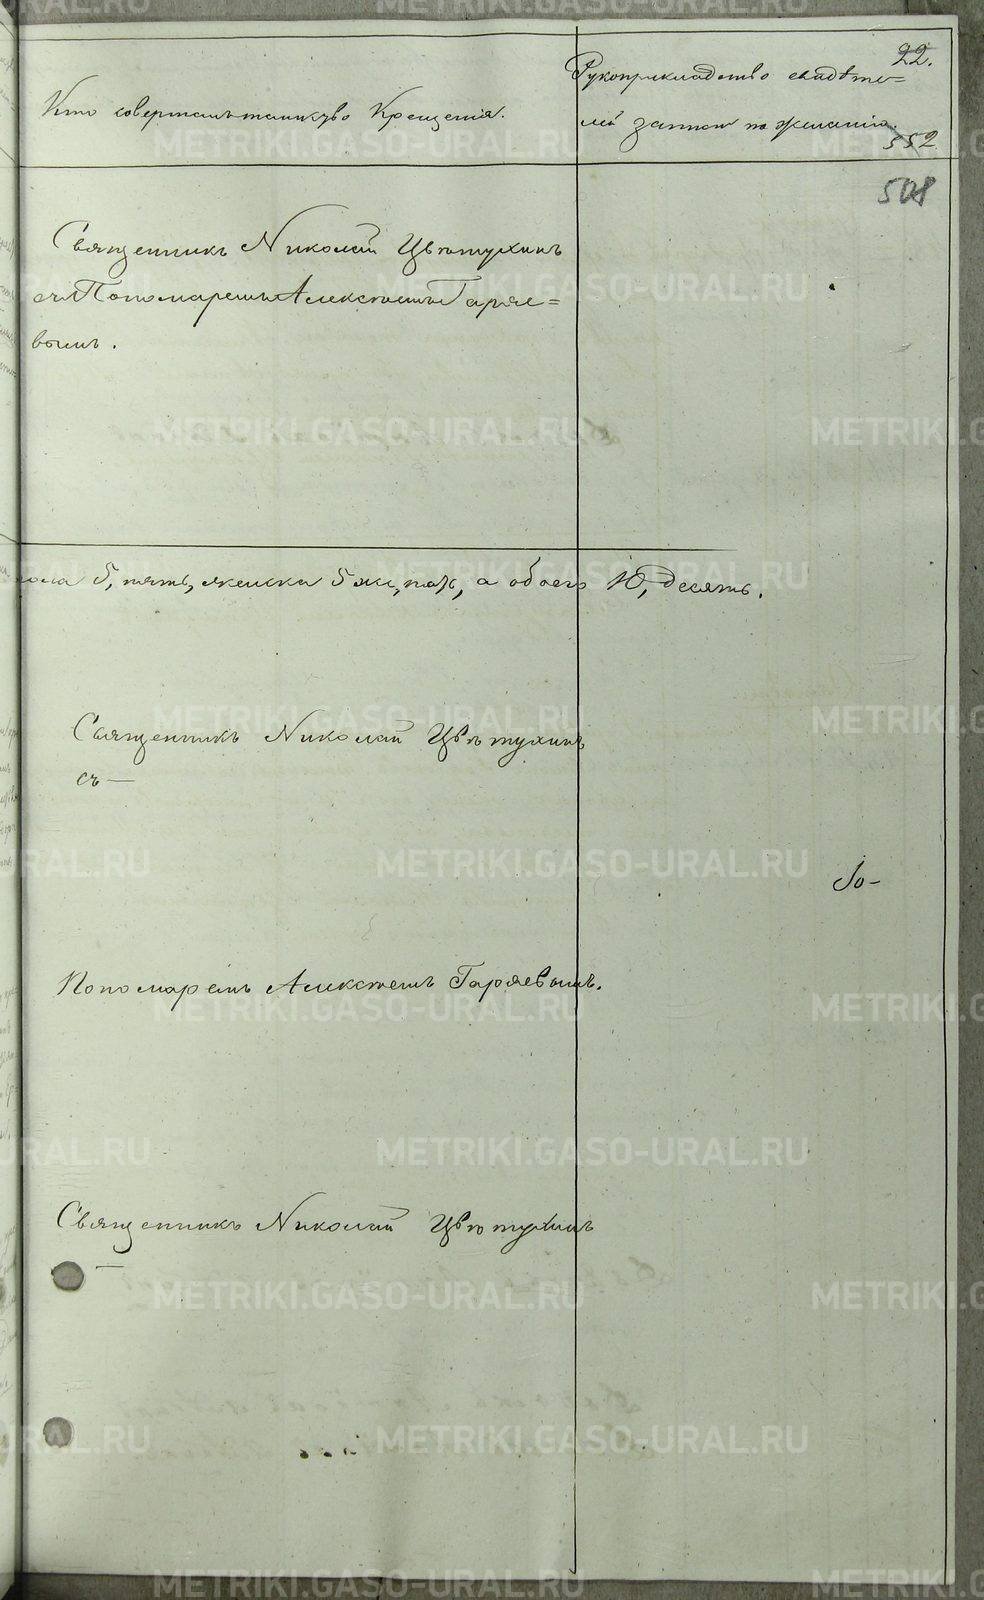 22.
Кто совершалъ таинство Крещенія.
Рукоприкладство свидѣте=
лей записи по желанію.
552
508
Священникъ Николай Цвѣтухинъ
съ Пономаремъ Алексѣемъ Гаряе=
вымъ.
пола 5, пять, женска 5 же, пять, а обоего 10, десять.
Священникъ Николай Цвѣтухинъ
съ —
Пономаремъ Алексѣемъ Гаряевымъ.
Священникъ Николай Цвѣтухинъ
METRIKI.GASO-URAL.RU